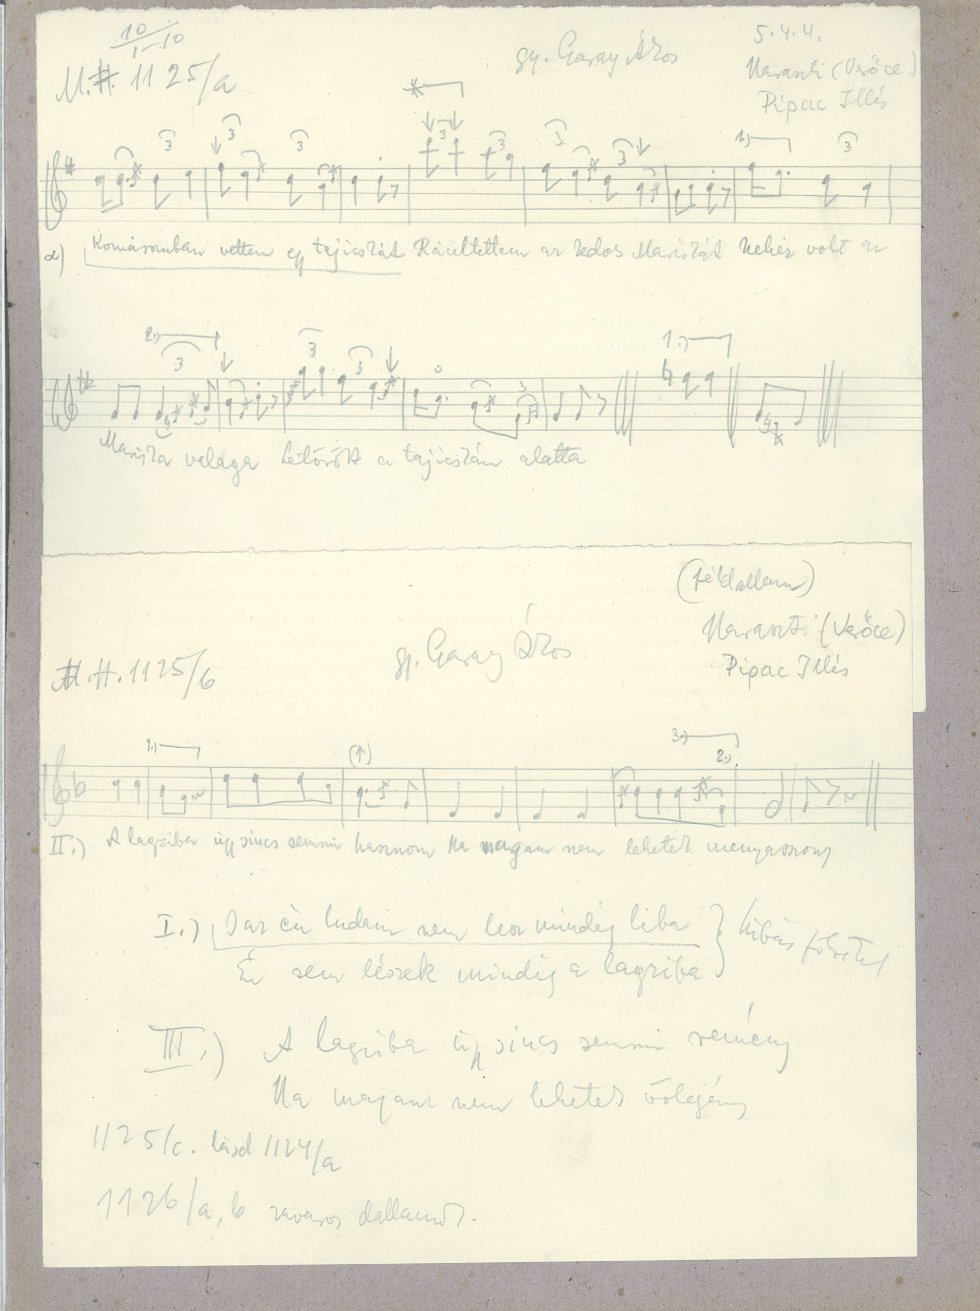 10/1-10
5.4.4.
M.H. 1125/a
gy. Garay Ákos
Haraszti (Verőce)
Pipac Illés
a) Komáromban vettem egy tajicskát Ráültettem az Marcsát nehéz volt a
Mariska világa letörött a tajicskám alatta
(féldallam)
Haraszti (Verőce)
M.H. 1125/b
gy. Garay Ákos
Pipac Illés
II.) A lagziba úgy sincs semmi hasznom Ha magam nem lehetek menyasszony
I.) Jaz én ludam nem lesz mindég liba
Én sem leszek mindig a lagziba
hibás felvétel
III.) A lagziba úgy sincs semmi remény
Ha magam nem lehetek vőlegény
1125/c. lásd 1124/a
1126/a, b zavaros dallamok.